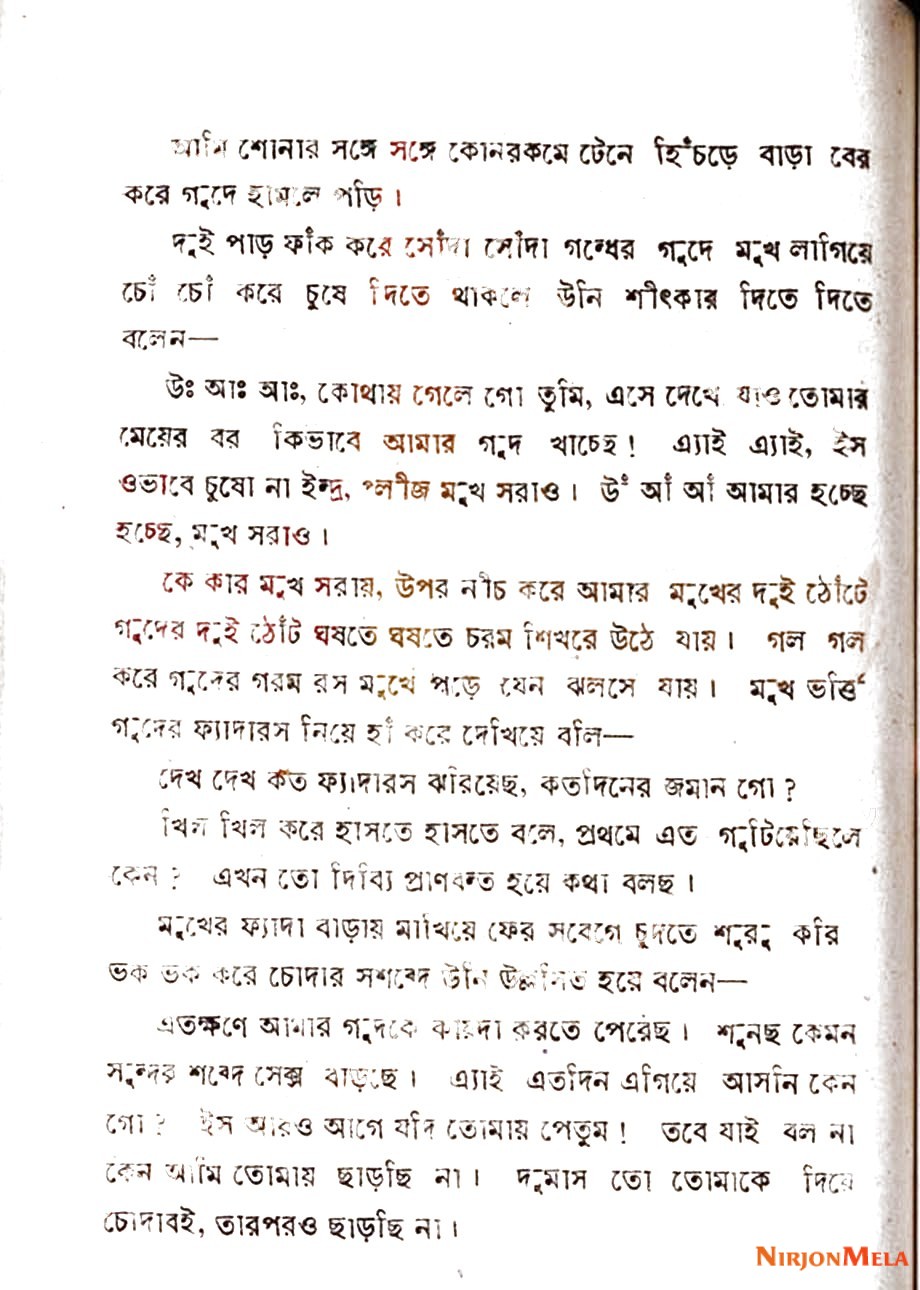 আমি শোনার সঙ্গে সঙ্গে কোনরকমে টেনে হিঁচড়ে বাড়া বের
করে গুদে হামলে পড়ি ।
দুই পাড় ফাঁক করে সোঁদা সোঁদা গন্ধের গুদে মুখ লাগিয়ে
চোঁ চোঁ করে চুষে দিতে থাকলে উনি শীৎকার দিতে দিতে
বলেন—
উঃ আঃ আঃ, কোথায় গেলে গো তুমি, এসে দেখে যাও তোমার
মেয়ের বর কিভাবে আমার গুদ খাচ্ছে ! এ্যাই এ্যাই, ইস
ওভাবে চুষো না ইন্দ্র, প্লীজ মুখ সরাও । উঁ আঁ আঁ আমার হচ্ছে
হচ্ছে, মুখ সরাও ।
কে কার মুখ সরায়, উপর নীচ করে আমার মুখের দুই ঠোঁটে
গুদের দুই ঠোঁট ঘষতে ঘষতে চরম শিখরে উঠে যায় । গল গল
করে গুদের গরম রস মুখে পড়ে যেন ঝলসে যায় । মুখ ভর্ত্তি
গুদের ফ্যাদারস নিয়ে হাঁ করে দেখিয়ে বলি—
দেখ দেখ কত ফ্যাদারস ঝরিয়েছ, কতদিনের জমান গো ?
খিল খিল করে হাসতে হাসতে বলে, প্রথমে এত গুটিয়েছিলে
কেন ? এখন তো দিব্যি প্রাণবন্ত হয়ে কথা বলছ ।
মুখের ফ্যাদা বাড়ায় মাখিয়ে ফের সবেগে চুদতে শুরু করি
ভক ভক করে চোদার সশব্দে উনি উল্লসিত হয়ে বলেন—
এতক্ষণে আমার গুদকে কায়দা করতে পেরেছ । শুনছ কেমন
সুন্দর শব্দে সেক্স বাড়ছে । এ্যাই এতদিন এগিয়ে আসনি কেন
গো ? ইস আরও আগে যদি তোমায় পেতুম ! তবে যাই বল না
কেন আমি তোমায় ছাড়ছি না । দুমাস তো তোমাকে দিয়ে
চোদাবই, তারপরও ছাড়ছি না ।
NIRJONMELA